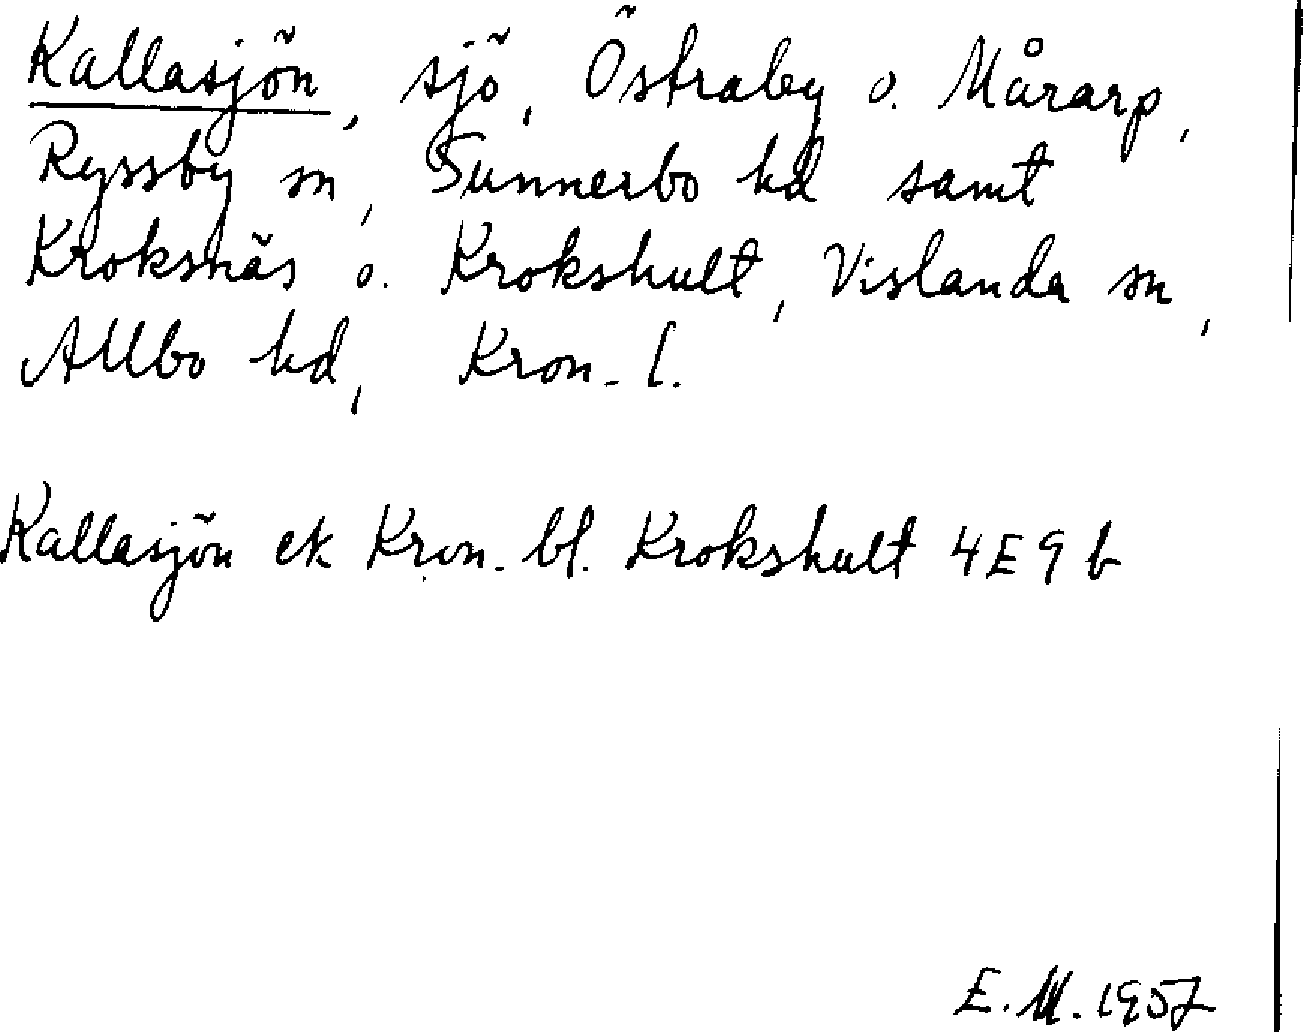 Kallasjön, sjö, Östraby o. Mårarp,
Ryssby sn, Sunnerbo hd samt
Kroksnäs o. Krokshult, Vislanda sn,
Allbo hd, Kron. l.
Kallasjön ek Kron. bl. Krokshult 4E9b
E. M. 1957